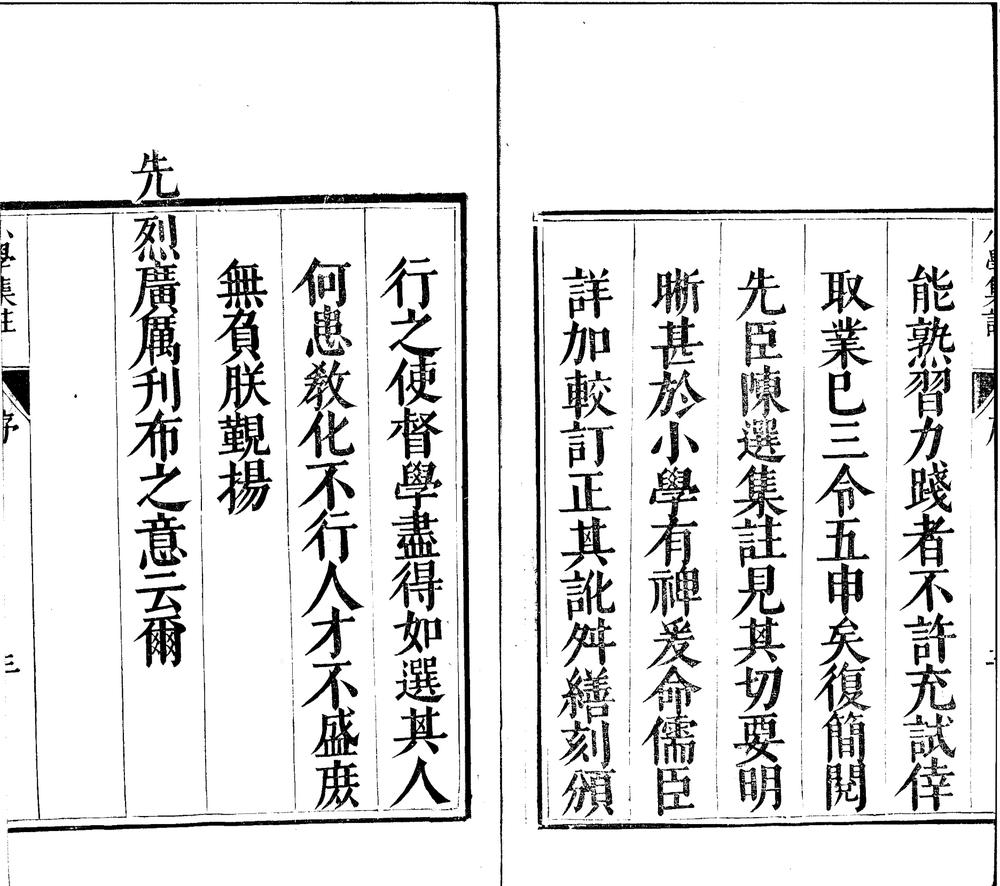 能熟習力踐者不許充試倖
取業巳三令五申矣復簡閱
先臣陳選集註見其切要明
晰甚於小學有裨爰命儒臣
詳加較訂正其訛舛繕刻頒
行之使督學盡得如選其人
何患教化不行人才不盛庻
無負朕覲揚
先烈廣厲刋布之意云爾
小學集註
序
三